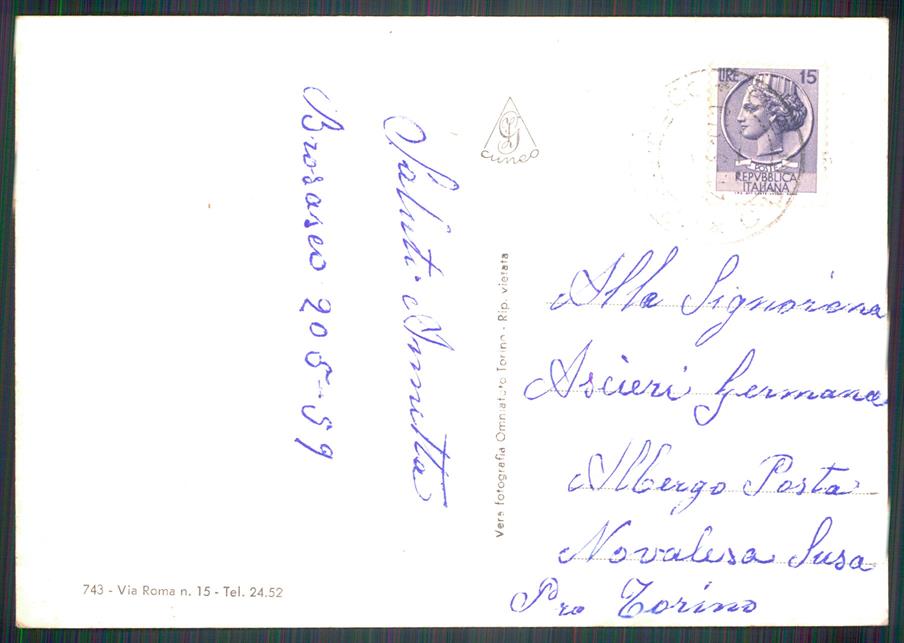 Brosasco 20-5-59
Saluti Annetta
743 - Via Roma n. 15 - Tel. 24.52
Cuneo
Vera fotografia Omniafoto Torino - Rip. vietata
LIRE 15
POSTE
REPVBBLICA
ITALIANA
Alla Signorina
Ascieri Germana
Albergo Posta
Novalesa Susa
Pro Torino